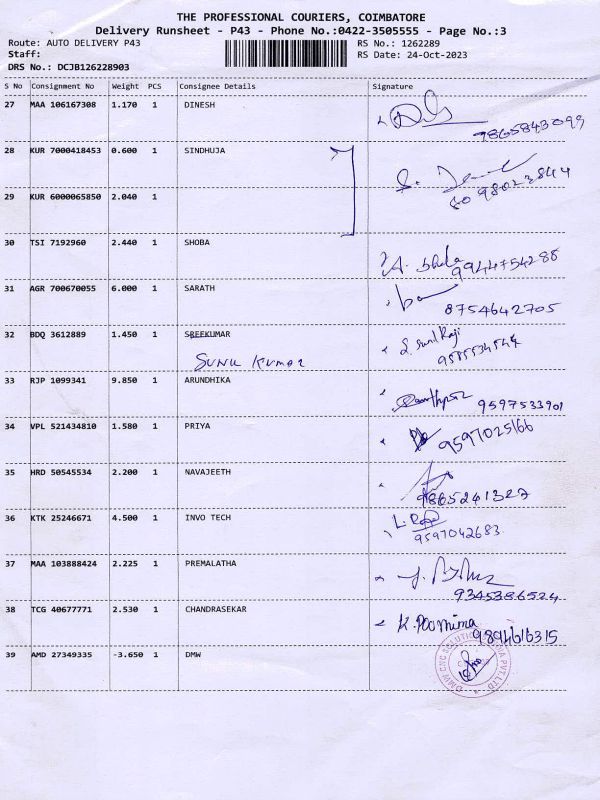 THE PROFESSIONAL COURIERS, COIMBATORE
Delivery Runsheet - P43 - Phone No.:0422-3505555 - Page No.:3
Route: AUTO DELIVERY P43 RS No.: 1262289
Staff: RS Date: 24-Oct-2023
DRS No.: DCJB126228903
S No Consignment No Weight PCS Consignee Details Signature
27 MAA 106167308 1.170 1 DINESH
9865843099
28 KUR 7000418453 0.600 1 SINDHUJA
29 KUR 6000065850 2.040 1
30 TSI 7192960 2.440 1 SHOBA
9944754288
31 AGR 700670055 6.000 1 SARATH
8754642705
32 BDQ 3612889 1.450 1 SREEKUMAR
SUNU KUMAR
33 RJP 1099341 9.850 1 ARUNDHIKA
9597533901
34 VPL 521434810 1.580 1 PRIYA
9597025166
35 HRD 50545534 2.200 1 NAVAJEETH
9865241327
36 KTK 25246671 4.500 1 INVO TECH
9597042683
37 MAA 103888424 2.225 1 PREMALATHA
9345386524
38 TCG 40677771 2.530 1 CHANDRASEKAR
K. Poornima
9894616315
39 AMD 27349335 -3.650 1 DMW